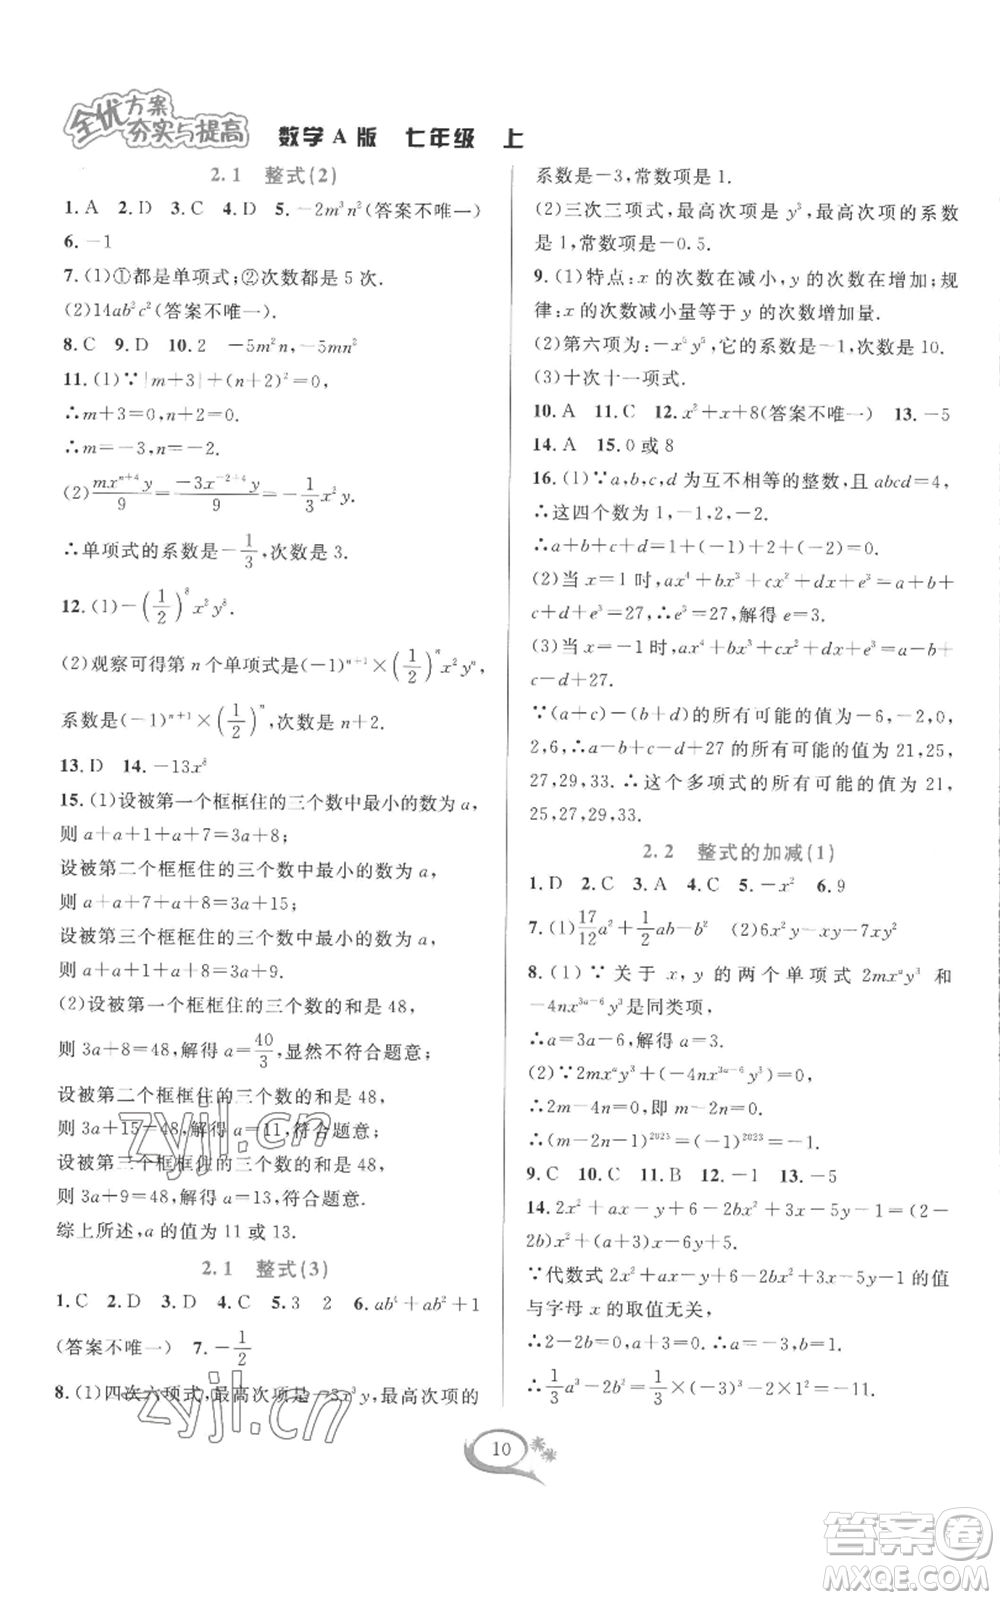 全优方案
夯实与提高 数学A版 七年级 上
2.1 整式(2)
1. A 2. D 3. C 4. D 5. －2m³n²(答案不唯一)
6. －1
7. (1)①都是单项式;②次数都是 5 次.
(2)14ab²c²(答案不唯一).
8. C 9. D 10. 2 －5m²n,－5mn²
11. (1)∵|m＋3|＋(n＋2)²＝0,
∴m＋3＝0,n＋2＝0,
∴m＝－3,n＝－2.
(2)mxⁿ⁺⁴y/9＝－3x⁻²⁺⁴y/9＝－1/3x²y.
∴单项式的系数是－1/3,次数是 3.
12. (1)－(1/2)⁸x²y⁸.
(2)观察可得第 n 个单项式是(－1)ⁿ⁺¹×(1/2)ⁿx²yⁿ,
系数是(－1)ⁿ⁺¹×(1/2)ⁿ,次数是 n＋2.
13. D 14. －13x⁸
15. (1)设被第一个框框住的三个数中最小的数为 a,
则 a＋a＋1＋a＋7＝3a＋8;
设被第二个框框住的三个数中最小的数为 a,
则 a＋a＋7＋a＋8＝3a＋15;
设被第三个框框住的三个数中最小的数为 a,
则 a＋a＋1＋a＋8＝3a＋9.
(2)设被第一个框框住的三个数的和是 48,
则 3a＋8＝48,解得 a＝40/3,显然不符合题意;
设被第二个框框住的三个数的和是 48,
则 3a＋15＝48,解得 a＝11,符合题意;
设被第三个框框住的三个数的和是 48,
则 3a＋9＝48,解得 a＝13,符合题意.
综上所述,a 的值为 11 或 13.
2.1 整式(3)
1. C 2. D 3. D 4. C 5. 3 2 6. ab⁴＋ab²＋1
(答案不唯一) 7. －1/2
8. (1)四次六项式,最高次项是－3x³y,最高次项的
系数是－3,常数项是 1.
(2)三次三项式,最高次项是 y³,最高次项的系数
是 1,常数项是－0.5.
9. (1)特点:x 的次数在减小,y 的次数在增加;规
律:x 的次数减小量等于 y 的次数增加量.
(2)第六项为:－x⁵y⁵,它的系数是－1,次数是 10.
(3)十次十一项式.
10. A 11. C 12. x²＋x＋8(答案不唯一) 13. －5
14. A 15. 0 或 8
16. (1)∵a,b,c,d 为互不相等的整数,且 abcd＝4,
∴这四个数为 1,－1,2,－2.
∴a＋b＋c＋d＝1＋(－1)＋2＋(－2)＝0.
(2)当 x＝1 时,ax⁴＋bx³＋cx²＋dx＋e³＝a＋b＋
c＋d＋e³＝27,∴e³＝27,解得 e＝3.
(3)当 x＝－1 时,ax⁴＋bx³＋cx²＋dx＋e³＝a－b＋
c－d＋27.
∵(a＋c)－(b＋d)的所有可能的值为－6,－2,0,
2,6,∴a－b＋c－d＋27 的所有可能的值为 21,25,
27,29,33.∴这个多项式的所有可能的值为 21,
25,27,29,33.
2.2 整式的加减(1)
1. D 2. C 3. A 4. C 5. －x² 6. 9
7. (1)17/12a²＋1/2ab－b² (2)6x²y－xy－7xy²
8. (1)∵关于 x,y 的两个单项式 2mxᵃy³ 和
－4nx³ᵃ⁻⁶y³是同类项,
∴a＝3a－6,解得 a＝3.
(2)∵2mxᵃy³＋(－4nx³ᵃ⁻⁶y³)＝0,
∴2m－4n＝0,即 m－2n＝0.
∴(m－2n－1)²⁰²³＝(－1)²⁰²³＝－1.
9. C 10. C 11. B 12. －1 13. －5
14. 2x²＋ax－y＋6－2bx²＋3x－5y－1＝(2－
2b)x²＋(a＋3)x－6y＋5.
∵代数式 2x²＋ax－y＋6－2bx²＋3x－5y－1 的值
与字母 x 的取值无关,
∴2－2b＝0,a＋3＝0.∴a＝－3,b＝1.
∴1/3a³－2b²＝1/3×(－3)³－2×1²＝－11.
10
zyjl.cn
zyjl.cn
答案卷
MXQE.COM